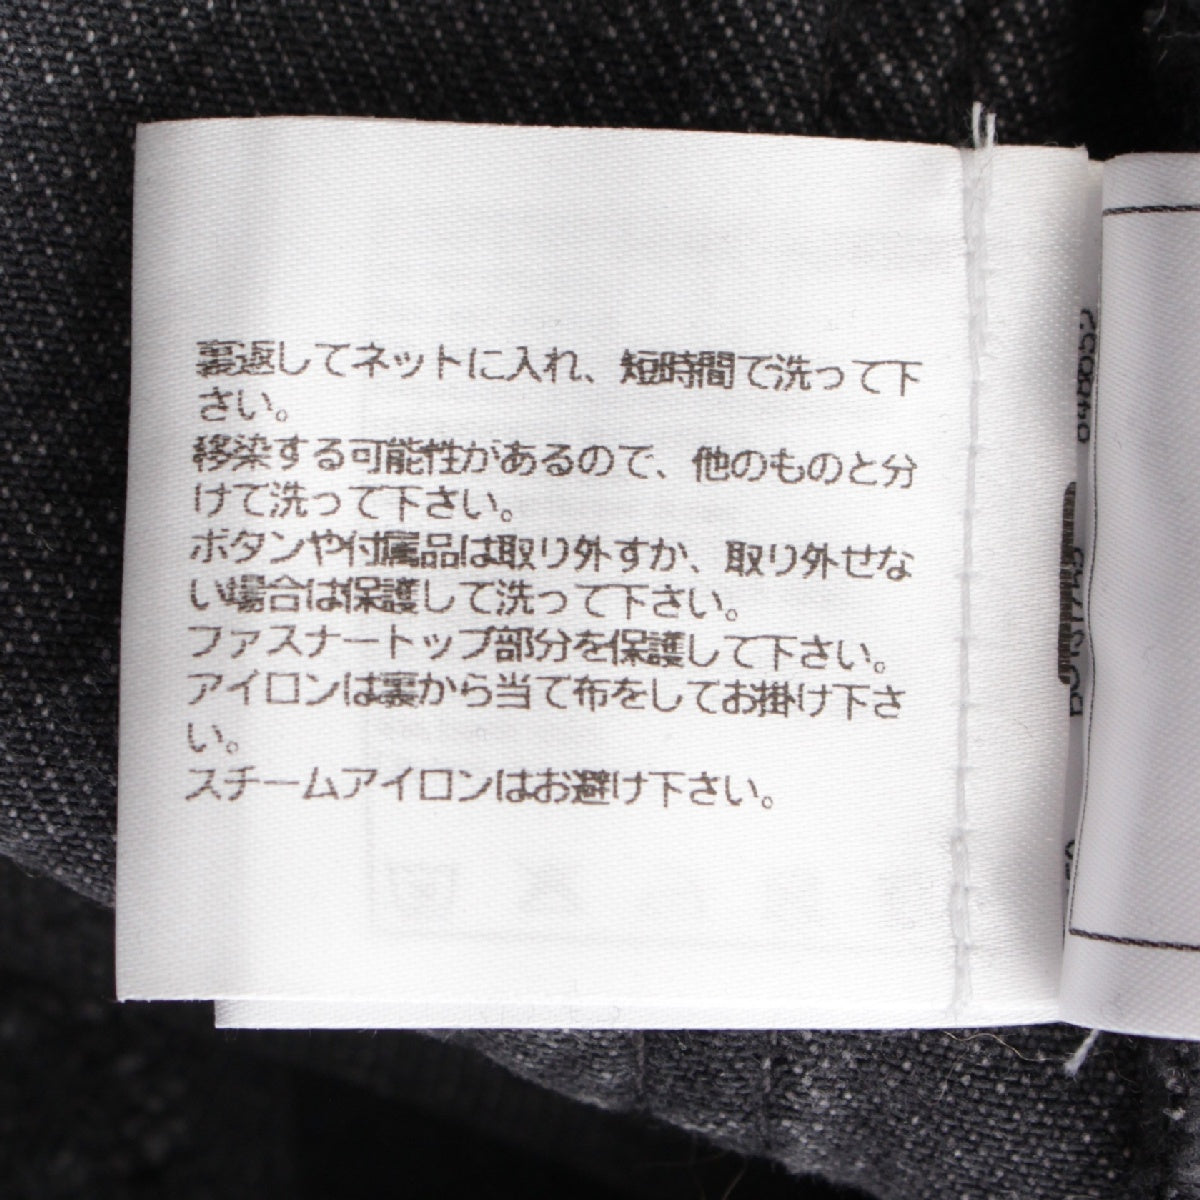 裏返してネットに入れ、短時間で洗って下
さい。
移染する可能性があるので、他のものと分
けて洗って下さい。
ボタンや付属品は取り外すか、取り外せな
い場合は保護して洗って下さい。
ファスナートップ部分を保護して下さい。
アイロンは裏から当て布をしてお掛け下さ
い。
スチームアイロンはお避け下さい。